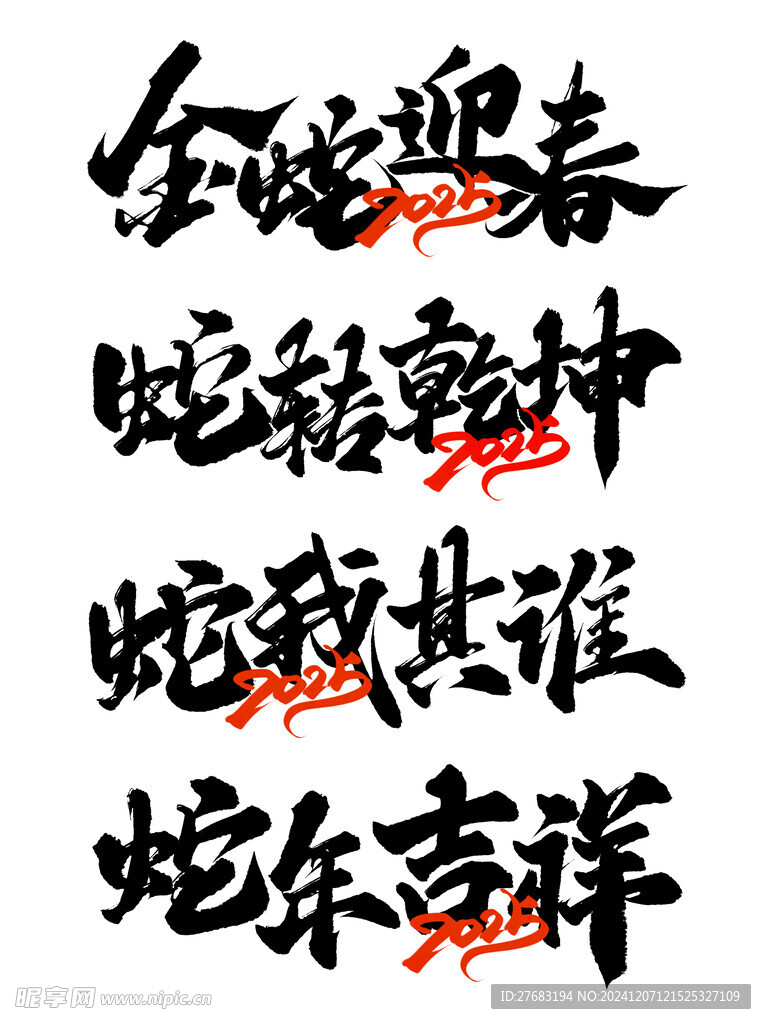 金蛇迎春
2025
蛇转乾坤
2025
蛇我其谁
2025
蛇年吉祥
2025
昵享网 www.nipic.cn
ID:27683194 NO:20241207121525327109